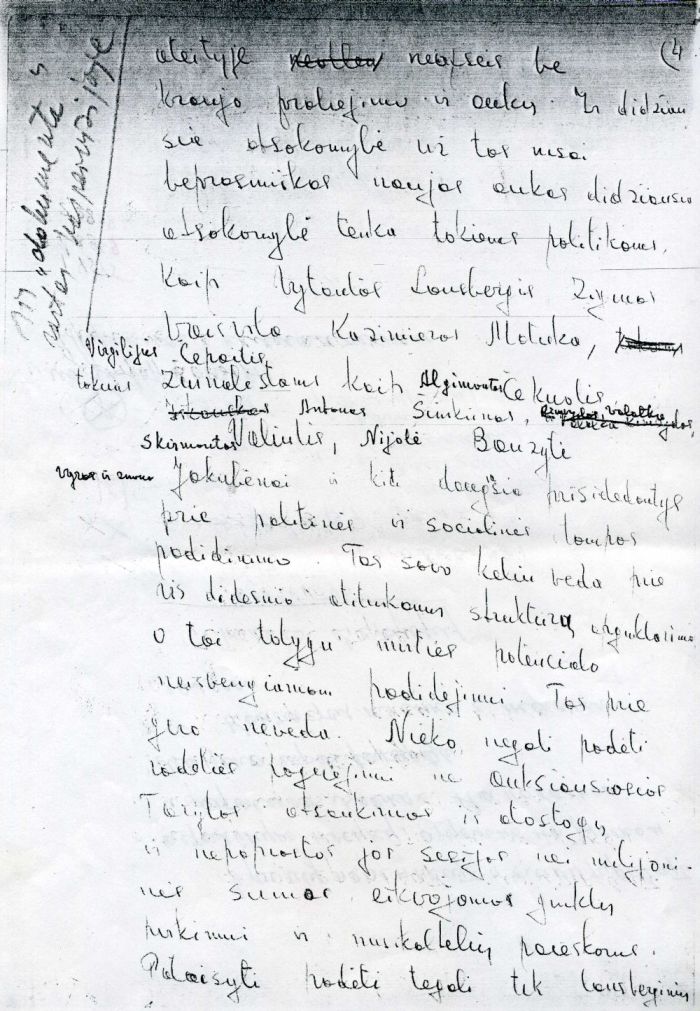 (4
ateityje neatseis be
kraujo praliejimo ir aukų. Ir didžiau
sia atsakomybė už tas visas
beprasmiškas naujas aukas didžiausia
atsakomybė tenka tokiems politikams,
kaip Vytautas Lansbergis Zigmas
Vaišvila Kazimieras Motieka,
Virgilijus Čepaitis
tokiems žurnalistams kaip Algimantas Čekuolis
Antanas Šimkūnas,
Skirmantas Valiulis, Nijolė Baužytė
vyras ir žmona Jakubėnai ir kiti daugžia prisidedantys
prie politinės ir socialinės įtampos
padidinimo. Tas savo keliu veda prie
vis didesnio atitinkamų struktūrų apginklavimo
o tai tolygu mirties potencialo
neišvengiamam padidėjimui. Tas prie
gero neveda. Nieko negali padėti
padėties pagerėjimui nė Aukščiausiosios
Tarybos atšaukimas iš atostogų
ir nepaprastos jos sesijos nei milijoni-
nės sumos eikvojamos ginklų
pirkimui ir nusikaltėlių paieškoms.
Pataisyti padėti tegali tik Lansberginės